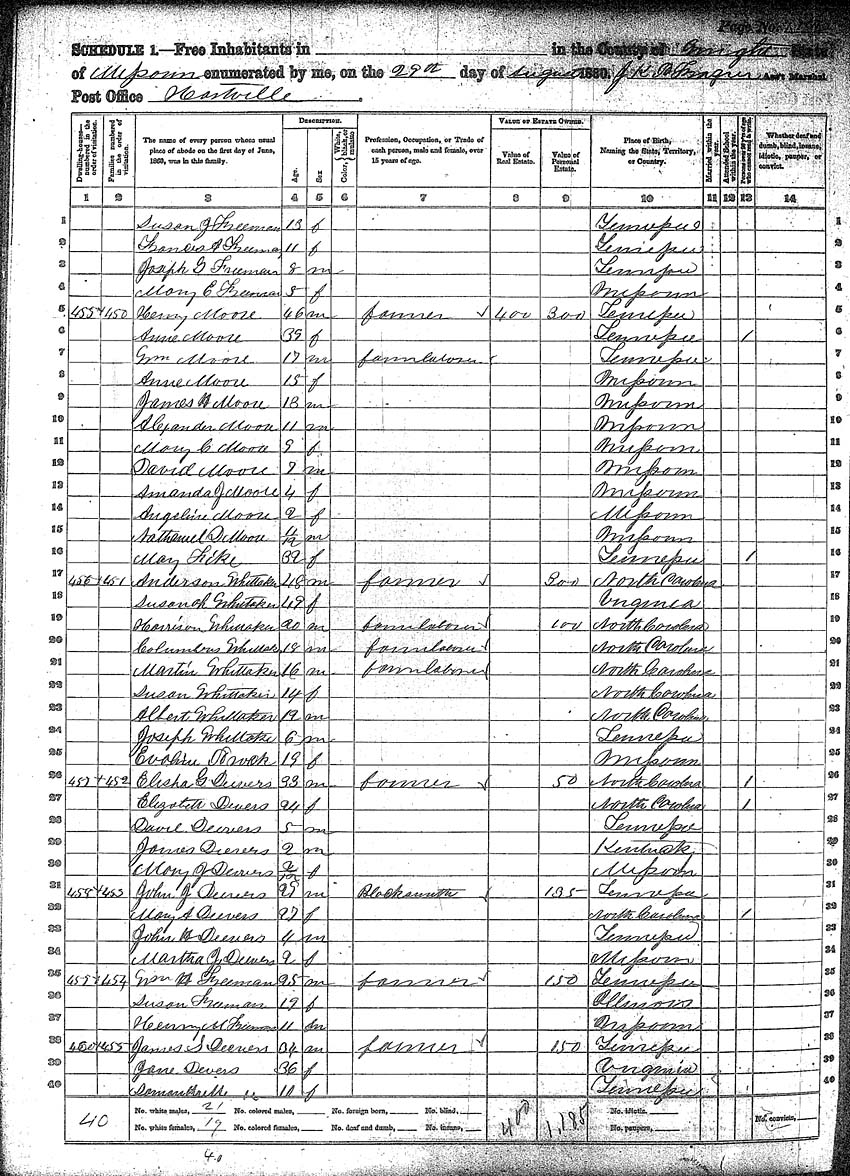 Page No.
SCHEDULE 1.—Free Inhabitants in in the County of Wright State
of Missouri enumerated by me, on the 29th day of August 1860. Ass't Marshal
Post Office Hartville
Dwelling-houses—numbered in the order of visitation. Families numbered in the order of visitation. The name of every person whose usual place of abode on the first day of June, 1860, was in this family. DESCRIPTION. Age. Sex Color, White, black, or mulatto Profession, Occupation, or Trade of each person, male and female, over 15 years of age. VALUE OF ESTATE OWNED. Value of Real Estate. Value of Personal Estate. Place of Birth, Naming the State, Territory, or Country. Married within the year. Attended School within the year. Persons over 20 y'rs of age who cannot read & write. Whether deaf and dumb, blind, insane, idiotic, pauper, or convict.
1 2 3 4 5 6 7 8 9 10 11 12 13 14
1 Susan J Freeman 13 f Tennessee 1
2 Frances A Freeman 11 f Tennessee 2
3 Joseph G Freeman 8 m Tennessee 3
4 Mary E Freeman 5 f Missouri 4
5 455 450 Henry Moore 46 m farmer 400 300 Tennessee 5
6 Anne Moore 39 f Tennessee 1 6
7 Wm Moore 17 m farm laborer Tennessee 7
8 Anne Moore 15 f Missouri 8
9 James H Moore 13 m Missouri 9
10 Alexander Moore 11 m Missouri 10
11 Mary C Moore 9 f Missouri 11
12 David Moore 7 m Missouri 12
13 Amanda J Moore 4 f Missouri 13
14 Angeline Moore 2 f Missouri 14
15 Nathaniel D Moore m Missouri 15
16 May Fike 39 f Tennessee 1 16
17 456 451 Anderson Whittaker 48 m farmer 300 North Carolina 17
18 Susanah Whittaker 49 f Virginia 18
19 Harrison Whittaker 20 m farm laborer 100 North Carolina 19
20 Columbus Whittaker 18 m farm laborer North Carolina 20
21 Martin Whittaker 16 m farm laborer North Carolina 21
22 Susan Whittaker 14 f North Carolina 22
23 Albert Whittaker 12 m North Carolina 23
24 Joseph Whittaker 6 m Tennessee 24
25 Evoline Brock 19 f Missouri 25
26 457 452 Elisha G Deevers 33 m farmer 50 North Carolina 1 26
27 Elizabeth Deevers 24 f North Carolina 1 27
28 David Deevers 5 m Tennessee 28
29 James Deevers 2 m Kentucky 29
30 Mary J Deevers 2/12 f Missouri 30
31 458 453 John J Deevers 29 m Blacksmith 135 Tennessee 31
32 Mary A Deevers 27 f North Carolina 1 32
33 John H Deevers 4 m Tennessee 33
34 Martha J Deevers 2 f Missouri 34
35 459 454 Wm H Freeman 25 m farmer 150 Tennessee 35
36 Susan Freeman 19 f Illinois 36
37 Henry M Freeman 11 m Missouri 37
38 460 455 James S Deevers 34 m farmer 150 Tennessee 38
39 Jane Devers 36 f Virginia 39
40 Samanthable " 10 f Tennessee 40
40 No. white males, 21 No. colored males, No. foreign born, No. blind, 400 1,185 No. idiotic. No. convicts,
No. white females, 19 No. colored females, No. deaf and dumb, No. insane, No. paupers,
40